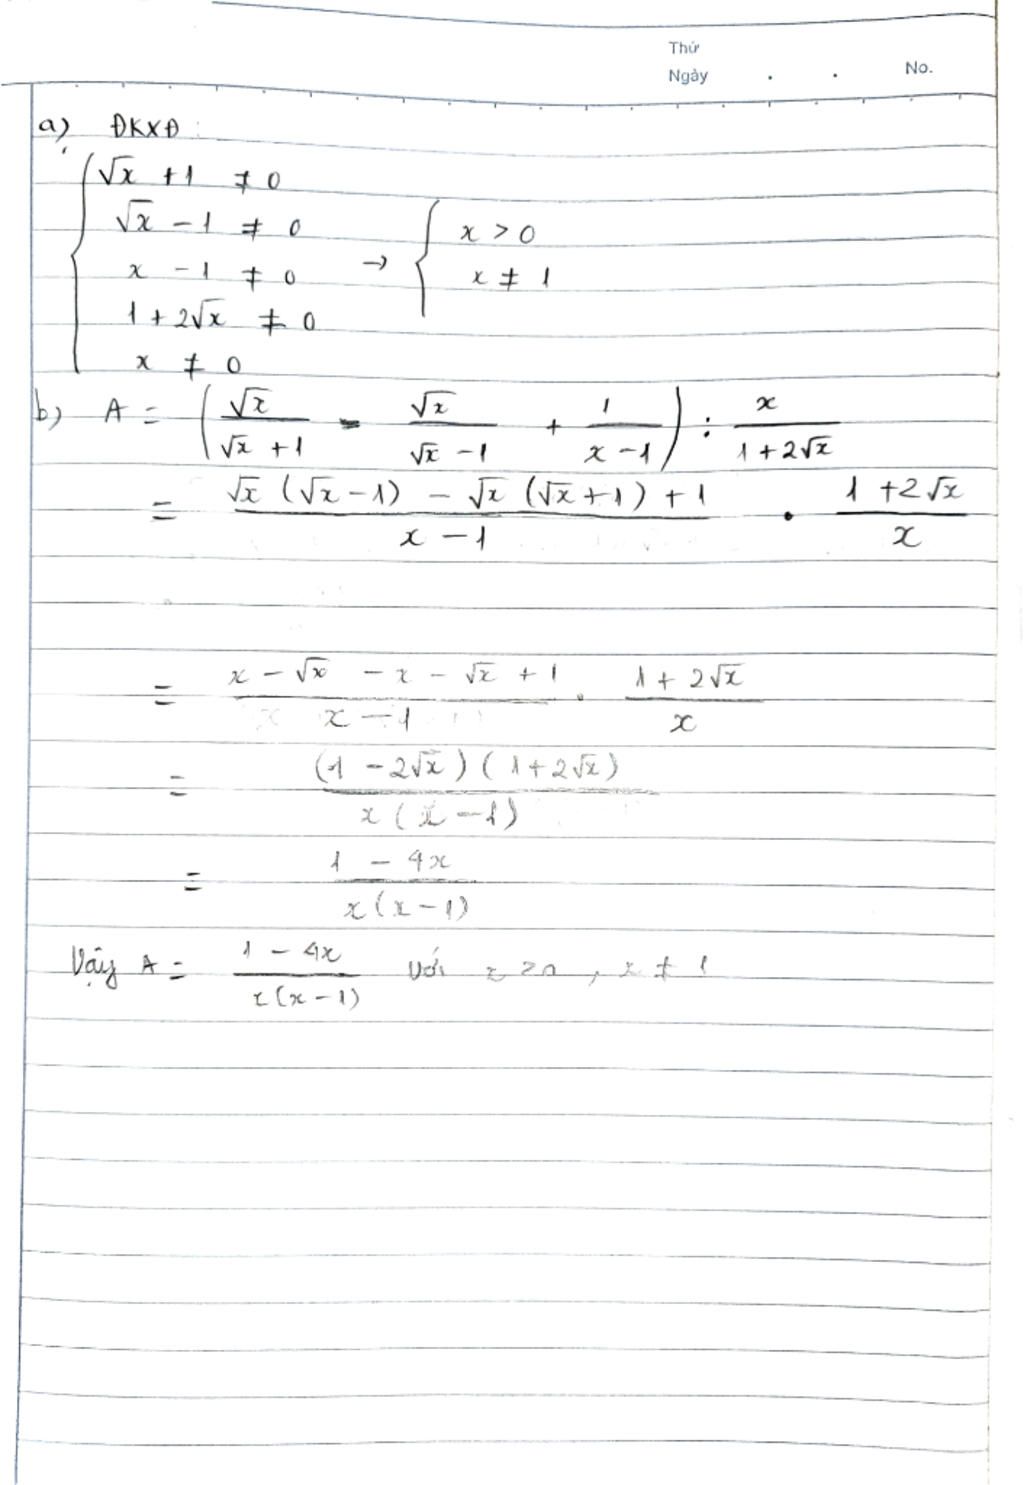 Thứ
Ngày . . No.
a) ĐKXĐ :
√x + 1 ≠ 0
√x - 1 ≠ 0
x - 1 ≠ 0 → { x > 0
x ≠ 1
1 + 2√x ≠ 0
x ≠ 0
b) A = ( √x / (√x + 1) - √x / (√x - 1) + 1 / (x - 1) ) ÷ x / (1 + 2√x)
= (√x (√x - 1) - √x (√x + 1) + 1) / (x - 1) . (1 + 2√x) / x
= (x - √x - x - √x + 1) / (x - 1) . (1 + 2√x) / x
= (1 - 2√x) (1 + 2√x) / x (x - 1)
= (1 - 4x) / x (x - 1)
Vậy A = (1 - 4x) / x (x - 1) với x > 0 , x ≠ 1